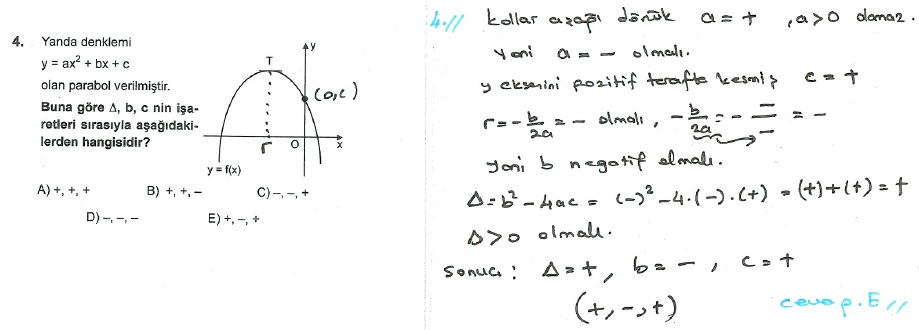 4. Yanda denklemi
y = ax² + bx + c
olan parabol verilmiştir.
Buna göre Δ, b, c nin işa-
retleri sırasıyla aşağıdaki-
lerden hangisidir?
T
y
(0,c)
r
O
x
y = f(x)
A) +, +, +
B) +, +, –
C) –, –, +
D) –, –, –
E) +, –, +
4.// kollar aşağı dönük a = + , a>0 olamaz.
Yani a = – olmalı.
y eksenini pozitif tarafta kesmiş c = +
r = -b/2a = – olmalı, -b/2a = - –/– = –
yani b negatif olmalı.
Δ = b² - 4ac = (-)² - 4.(-).(+) = (+)+(+) = +
Δ>0 olmalı.
Sonuç: Δ = +, b = –, c = +
(+, -, +)
cevap. E //